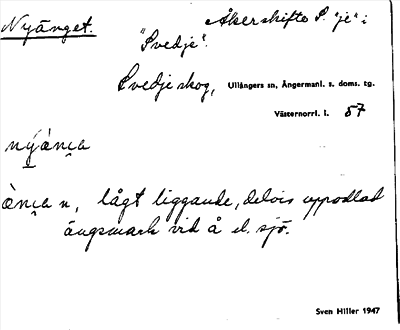 Nyänget. Åkerskifte S. "je" i
"Svedje".
Svedje skog, Ullångers sn, Ångermanl. s. doms. tg.
Västernorrl. l. 57
nýǟnc̨a
ànc̨a n, lågt liggande, delvis uppodlad
ängsmark vid å el. sjö.
Sven Hiller 1947